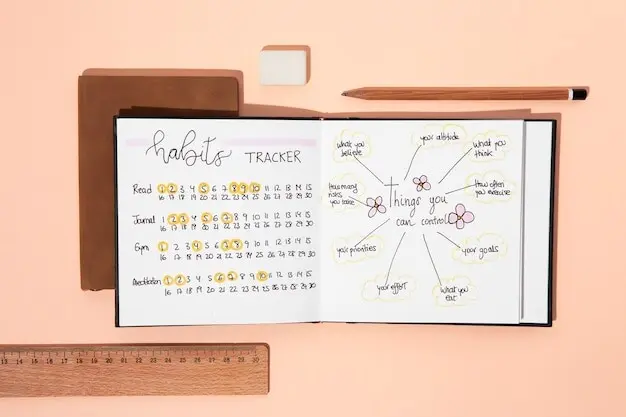 habits TRACKER
Read 1 2 3 4 5 6 7 8 9 10 11 12 13 14 15
16 17 18 19 20 21 22 23 24 25 26 27 28 29 30
Journal 1 2 3 4 5 6 7 8 9 10 11 12 13 14 15
16 17 18 19 20 21 22 23 24 25 26 27 28 29 30
Gym 1 2 3 4 5 6 7 8 9 10 11 12 13 14 15
16 17 18 19 20 21 22 23 24 25 26 27 28 29 30
Meditation 1 2 3 4 5 6 7 8 9 10 11 12 13 14 15
16 17 18 19 20 21 22 23 24 25 26 27 28 29 30
Things you
can control
your attitude
what you
think
How often
you exercise
your goals
what you
eat
your effort
your priorities
How many
risks
you take
what you
believe
13 14 15 16 17 18 19 20 21 22 23 24 25 26 27 28 29 30